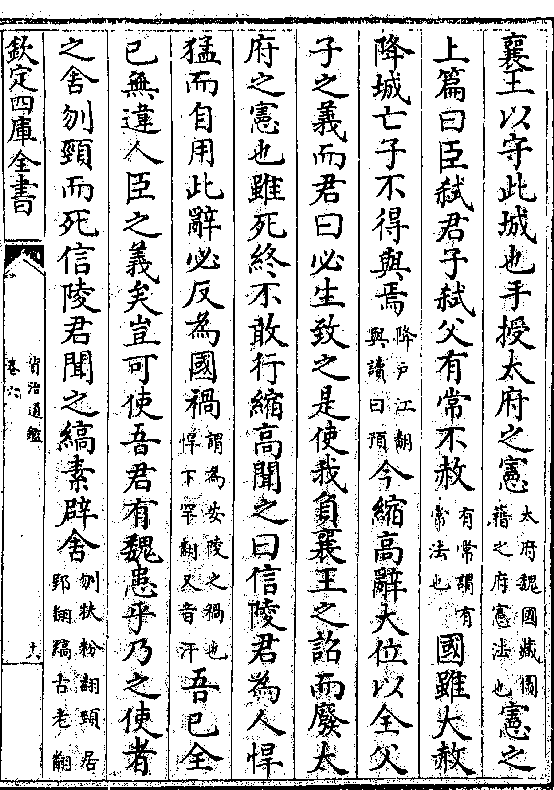 襄王以守此城也手授太府之憲太府魏國藏圖籍之府憲法也憲之
上篇曰臣弑君子弑父有常不赦有常謂有常法也國雖大赦
降城亡子不得與焉降户江翻與讀曰預今縮高辭大位以全父
子之義而君曰必生致之是使我負襄王之詔而廢太
府之憲也雖死終不敢行縮高聞之曰信陵君為人悍
猛而自用此辭必反為國禍謂為安陵之禍也悍下罕翻又音汗吾已全
已無違人臣之義矣豈可使吾君有魏患乎乃之使者
之舍刎頸而死信陵君聞之縞素辟舍刎扶粉翻頸居郢翻縞古老翻
欽定四庫全書
資治通鑑
卷六
十六